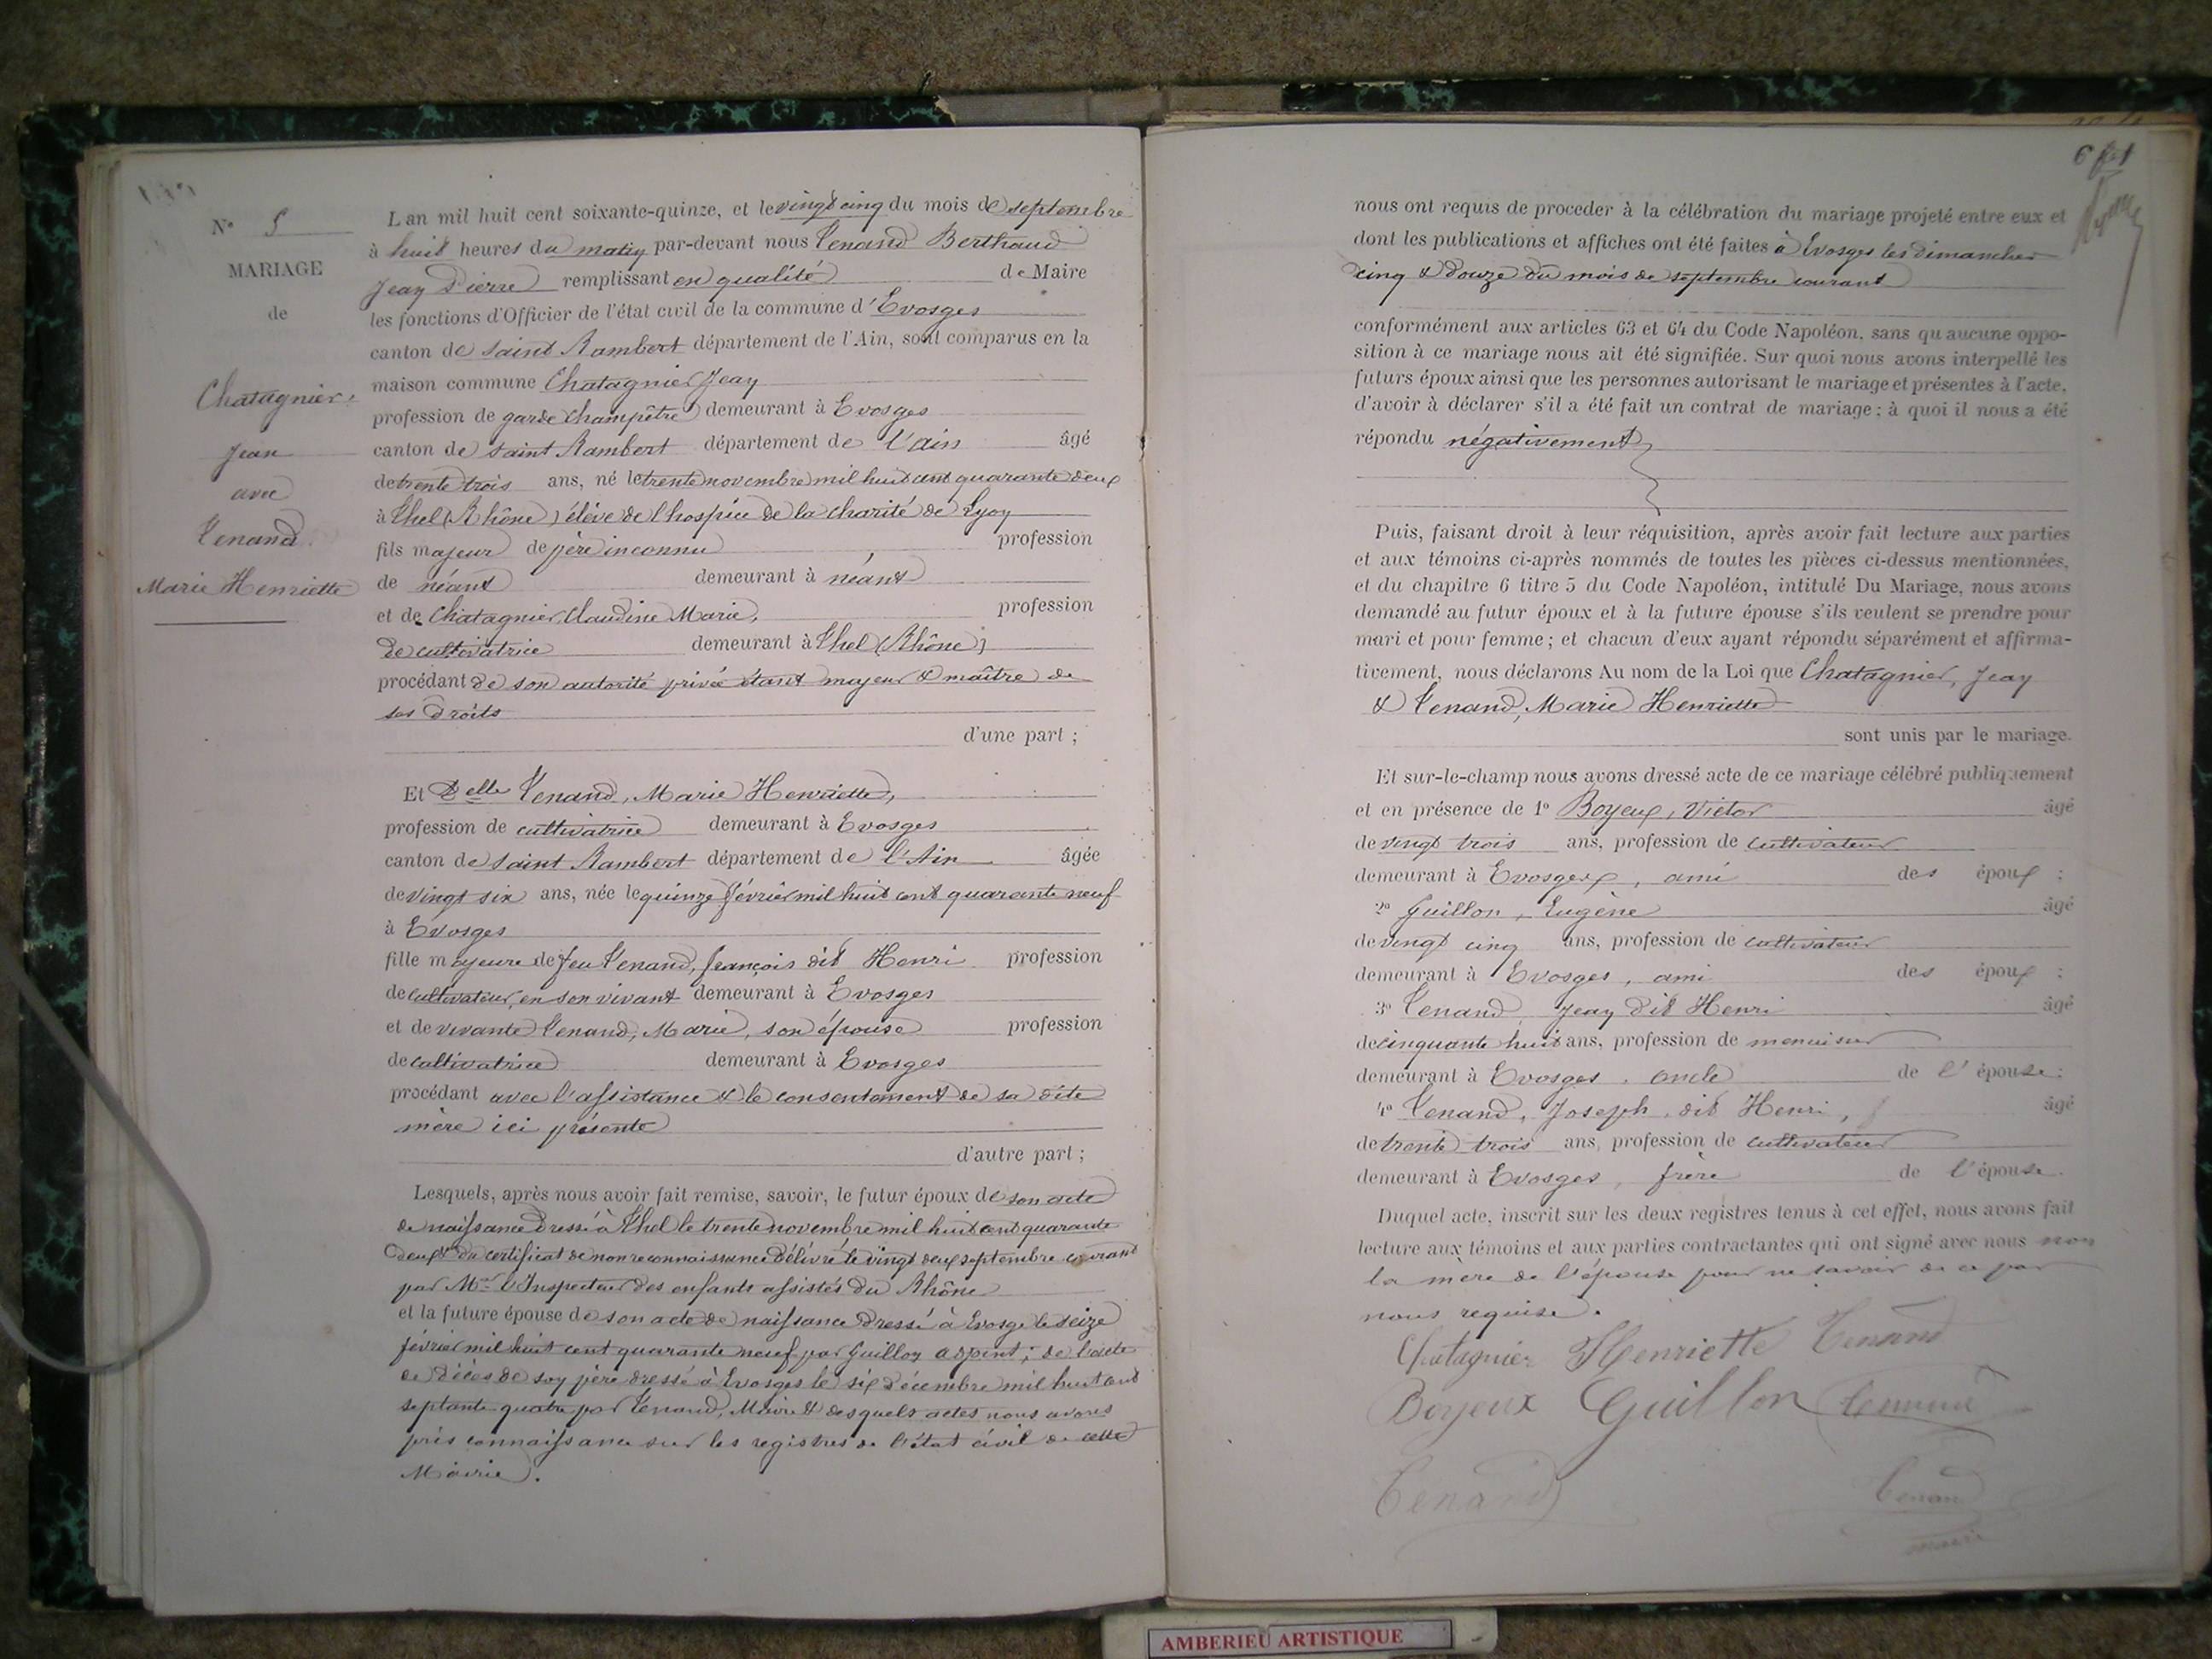 N° 5
MARIAGE
de
Chatagnier
Jean
avec
Tenand
Marie Henriette
L'an mil huit cent soixante-quinze, et le vingt cinq du mois de septembre
à huit heures du matin par-devant nous Tenand Berthaud
Jean Pierre remplissant en qualité de Maire
les fonctions d'Officier de l'état civil de la commune d'Evosges
canton de saint Rambert département de l'Ain, sont comparus en la
maison commune Chatagnier Jean
profession de garde champêtre demeurant à Evosges
canton de saint Rambert département de l'ain âgé
de trente trois ans, né le trente novembre mil huit cent quarante deux
à Thel (Rhône) élève de l'hospice de la charité de Lyon
fils majeur de père inconnu profession
de néant demeurant à néant
et de Chatagnier, Claudine Marie, profession
de cultivatrice demeurant à Thel (Rhône)
procédant de son autorité privée étant majeur & maître de
ses droits
d'une part ;
Et Delle Tenand, Marie Henriette,
profession de cultivatrice demeurant à Evosges
canton de saint Rambert département de l'Ain âgée
de vingt six ans, née le quinze février mil huit cent quarante neuf
à Evosges
fille majeure de feu Tenand, françois dit Henri profession
de cultivateur, en son vivant demeurant à Evosges
et de vivante Tenand, Marie, son épouse profession
de cultivatrice demeurant à Evosges
procédant avec l'assistance & le consentement de sa dite
mère ici présente
d'autre part ;
Lesquels, après nous avoir fait remise, savoir, le futur époux de son acte
de naissance dressé à Thel le trente novembre mil huit cent quarante
deux & du certificat de non reconnaissance délivré le vingt deux septembre courant
par Mr l'Inspecteur des enfants assistés du Rhône
et la future épouse de son acte de naissance dressé à Evosge le seize
février mil huit cent quarante neuf par Guillon adjoint ; de l'acte
de décès de son père dressé à Evosges le six décembre mil huit cent
septante quatre par Tenand, Maire & desquels actes nous avons
pris connaissance sur les registres de l'état civil de cette
Mairie.
6
nous ont requis de proceder à la célébration du mariage projeté entre eux et
dont les publications et affiches ont été faites à Evosges les dimanches
cinq & douze du mois de septembre courant
conformément aux articles 63 et 64 du Code Napoléon, sans qu'aucune oppo-
sition à ce mariage nous ait été signifiée. Sur quoi nous avons interpellé les
futurs époux ainsi que les personnes autorisant le mariage et présentes à l'acte,
d'avoir à déclarer s'il a été fait un contrat de mariage ; à quoi il nous a été
répondu négativement
Puis, faisant droit à leur réquisition, après avoir fait lecture aux parties
et aux témoins ci-après nommés de toutes les pièces ci-dessus mentionnées,
et du chapitre 6 titre 5 du Code Napoléon, intitulé Du Mariage, nous avons
demandé au futur époux et à la future épouse s'ils veulent se prendre pour
mari et pour femme ; et chacun d'eux ayant répondu séparément et affirma-
tivement, nous déclarons Au nom de la Loi que Chatagnier, Jean
& Tenand, Marie Henriette
sont unis par le mariage.
Et sur-le-champ nous avons dressé acte de ce mariage célébré publiquement
et en présence de 1° Boyeux, Victor âgé
de vingt trois ans, profession de cultivateur
demeurant à Evosges, ami des époux ;
2° Guillon, Eugène âgé
de vingt cinq ans, profession de cultivateur
demeurant à Evosges, ami des époux ;
3° Tenand, Jean dit Henri âgé
de cinquante huit ans, profession de menuisier
demeurant à Evosges, oncle de l'épouse ;
4° Tenand, Joseph, dit Henri, âgé
de trente trois ans, profession de cultivateur
demeurant à Evosges, frère de l'épouse.
Duquel acte, inscrit sur les deux registres tenus à cet effet, nous avons fait
lecture aux témoins et aux parties contractantes qui ont signé avec nous non
la mère de l'épouse pour ne savoir de ce par
nous requise.
Chatagnier Henriette Tenand
Boyeux Guillon Tenand
Tenand Tenand
maire
AMBERIEU ARTISTIQUE